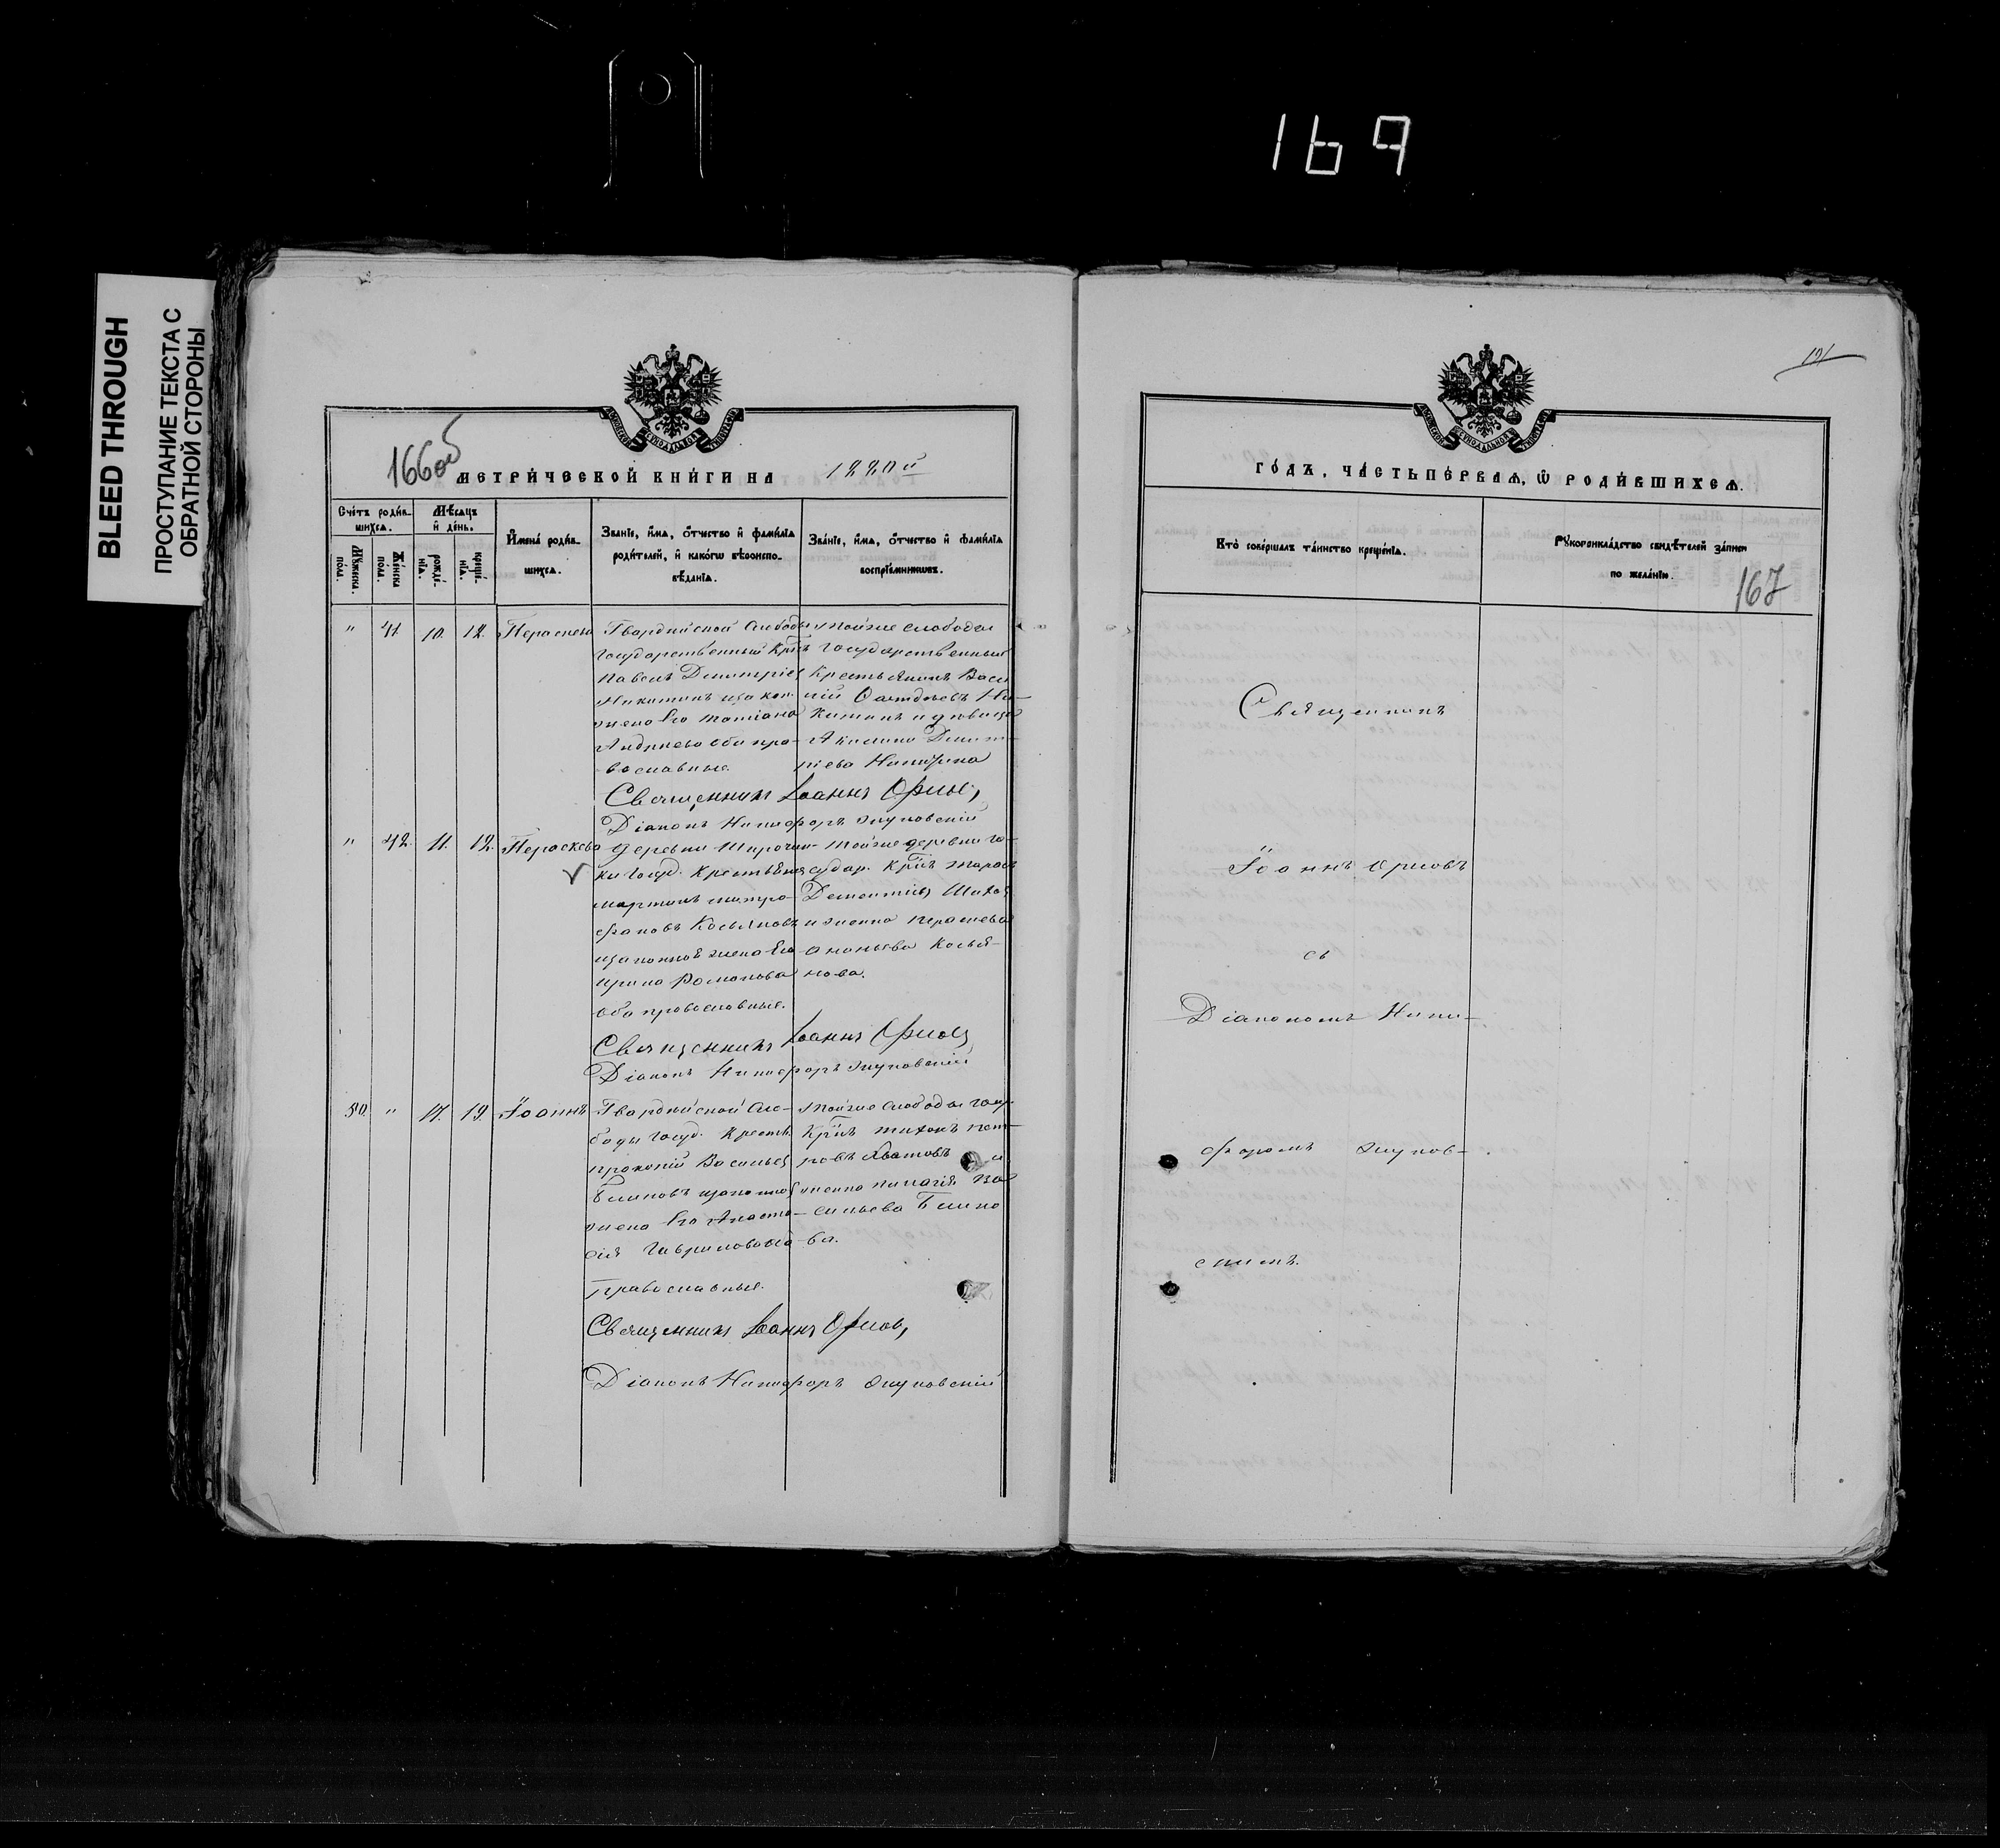 169
BLEED THROUGH
ПРОСТУПАНИЕ ТЕКСТА С
ОБРАТНОЙ СТОРОНЫ
166об
МЕТРИЧЕСКОЙ КНИГИ НА 1880й
Счетъ родив-
шихся.
Мѣсяцъ
и день.
Мужеска
пола.
Женска
пола.
рожде-
нія.
креще-
нія.
Имена родив-
шихся.
Званіе, имя, отчество и фамилія
родителей, и какого вѣроиспо-
вѣданія.
Званіе, имя, отчество и фамилія
воспріемниковъ.
" 41 10. 12. Параскева
Гвардейской Слободы
государственный Крт
Павелъ Димитріев
Никитинъ и закон.
жена Его татіана
Андреева оба пра-
вославные.
тойже слободы
государственный
Крестьянинъ Васи
лій Ни-
китинъ и девица
Акилина Димит-
ріева Никитина
Священникъ Іоаннъ Орлов,
Діаконъ Никифоръ Жуковскій
" 42. 11. 12. Параскева
деревни Широчан-
ки госуд. Крестьянин
мартинъ митро-
фановъ Косьяновъ
изаконная жена Его
ирина Романова
оба православные.
тойже деревни го-
судар. Крт тарас
Дементіев
и жена параскева
ананьева Косья-
нова.
Священникъ Іоаннъ Орлов,
Діаконъ Никифоръ Жуковскій
50. " 17. 19. Іоаннъ
Гвардейской Сло-
боды госуд. Крестьян.
прокопій Васильев
Блиновъ изаконная
жена Его Анаста-
сія Гаврилова оба
Православные.
тойже Слободы госу
Крт тихонъ пет-
ровъ и
жена пилагія ва
сильева Блино
ва.
Священникъ Іоаннъ Орлов,
Діаконъ Никифоръ Жуковскій
191
ГОДЪ, ЧАСТЬ ПЕРВАЯ, Ѡ РОДИВШИХСЯ.
Кто совершалъ таинство крещенія.
Рукоприкладство свидѣтелей записи
по желанію.
167
Священникъ
Іоаннъ Орловъ
съ
Діакономъ Ники-
форомъ Жуков-
скимъ.